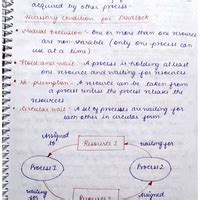 acquired by other process.
Necessary Condition for Deadlock
Mutual Exclusion - One or more than one resource
are non-sharable (only one process can
use at a time)
Hold and wait - A process is holding atleast
one resource and waiting for resources
No preemption - A resource can be taken from
a process unless the process releases the
resources
Circular wait - A set of processes are waiting for
each other in circular form
assigned to
Resource 1
waiting for
Process 1
Process 2
waiting for
assigned to
Resource 2